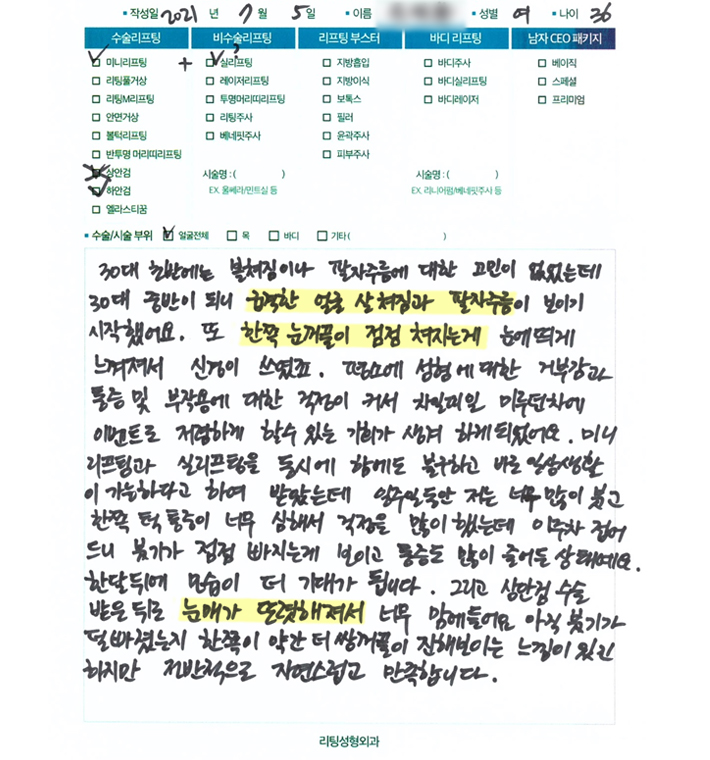 작성일 2021 년 7 월 5 일 이름 성별 여 나이 36
수술리프팅 비수술리프팅 리프팅 부스터 바디 리프팅 남자 CEO 패키지
미니리프팅 + 실리프팅 ? 지방흡입 바디주사 베이직
리팅풀거상 레이저리프팅 지방이식 바디실리프팅 스페셜
리팅M리프팅 투명머리띠리프팅 보톡스 바디레이저 프리미엄
안면거상 리팅주사 필러
볼턱리프팅 베네핏주사 윤곽주사
반투명 머리띠리프팅 피부주사
상안검 시술명 : ( ) 시술명 : ( )
하안검 EX. 울쎄라/민트실 등 EX. 리니어펌/베네핏주사 등
엘라스티꿈
수술/시술 부위 얼굴전체 목 바디 기타 ( )
30대 초반에는 볼쳐짐이나 팔자주름에 대한 고민이 없었는데
30대 중반이 되니 급격한 얼굴 살 쳐짐과 팔자주름이 보이기
시작했어요. 또 한쪽 눈꺼풀이 점점 쳐지는게 눈에 띄게
느껴져서 신경이 쓰였죠. 평소에 성형에 대한 거부감과
통증 및 부작용에 대한 걱정이 커서 차일피일 미루던차에
이벤트로 저렴하게 할수 있는 기회가 생겨 하게 되었어요. 미니
리프팅과 실리프팅을 동시에 함에도 불구하고 바로 일상생활
이 가능하다고 하여 받았는데 일주일동안 저는 너무 많이 붓고
한쪽 턱 통증이 너무 심해서 걱정을 많이 했는데 이주차 접어
드니 붓기가 점점 빠지는게 보이고 통증도 많이 줄어든 상태예요.
한달뒤에 모습이 더 기대가 됩니다. 그리고 상안검 수술
받은 뒤로 눈매가 또렷해져서 너무 맘에들어요 아직 붓기가
덜빠졌는지 한쪽이 약간 더 쌍꺼풀이 진해보이는 느낌이 있긴
하지만 전반적으로 자연스럽고 만족합니다.
리팅성형외과